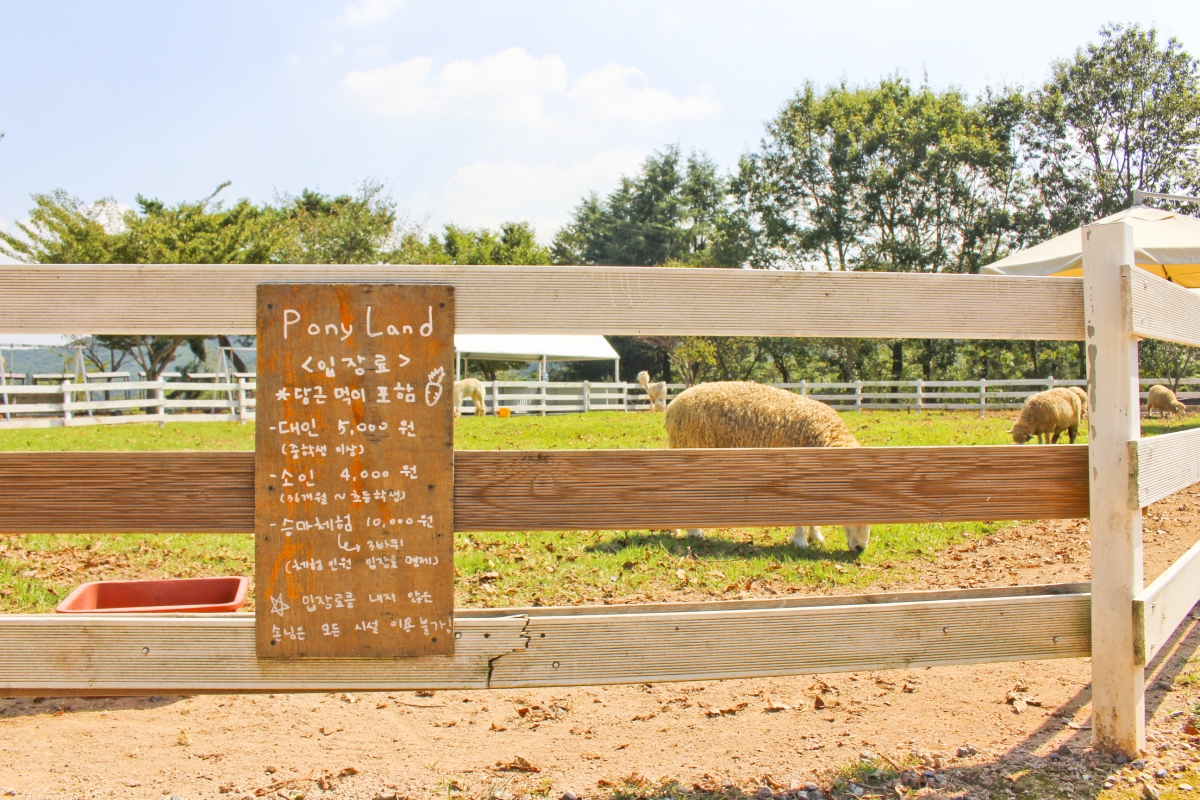 Pony Land
<입장료>
*당근 먹이 포함
-대인 5,000 원
(중학생 이상)
-소인 4,000 원
(36개월 ~ 초등학생)
-승마체험 10,000 원
3바퀴
(체험 인원 입장료 면제)
☆ 입장료를 내지 않은
손님은 모든 시설 이용불가!